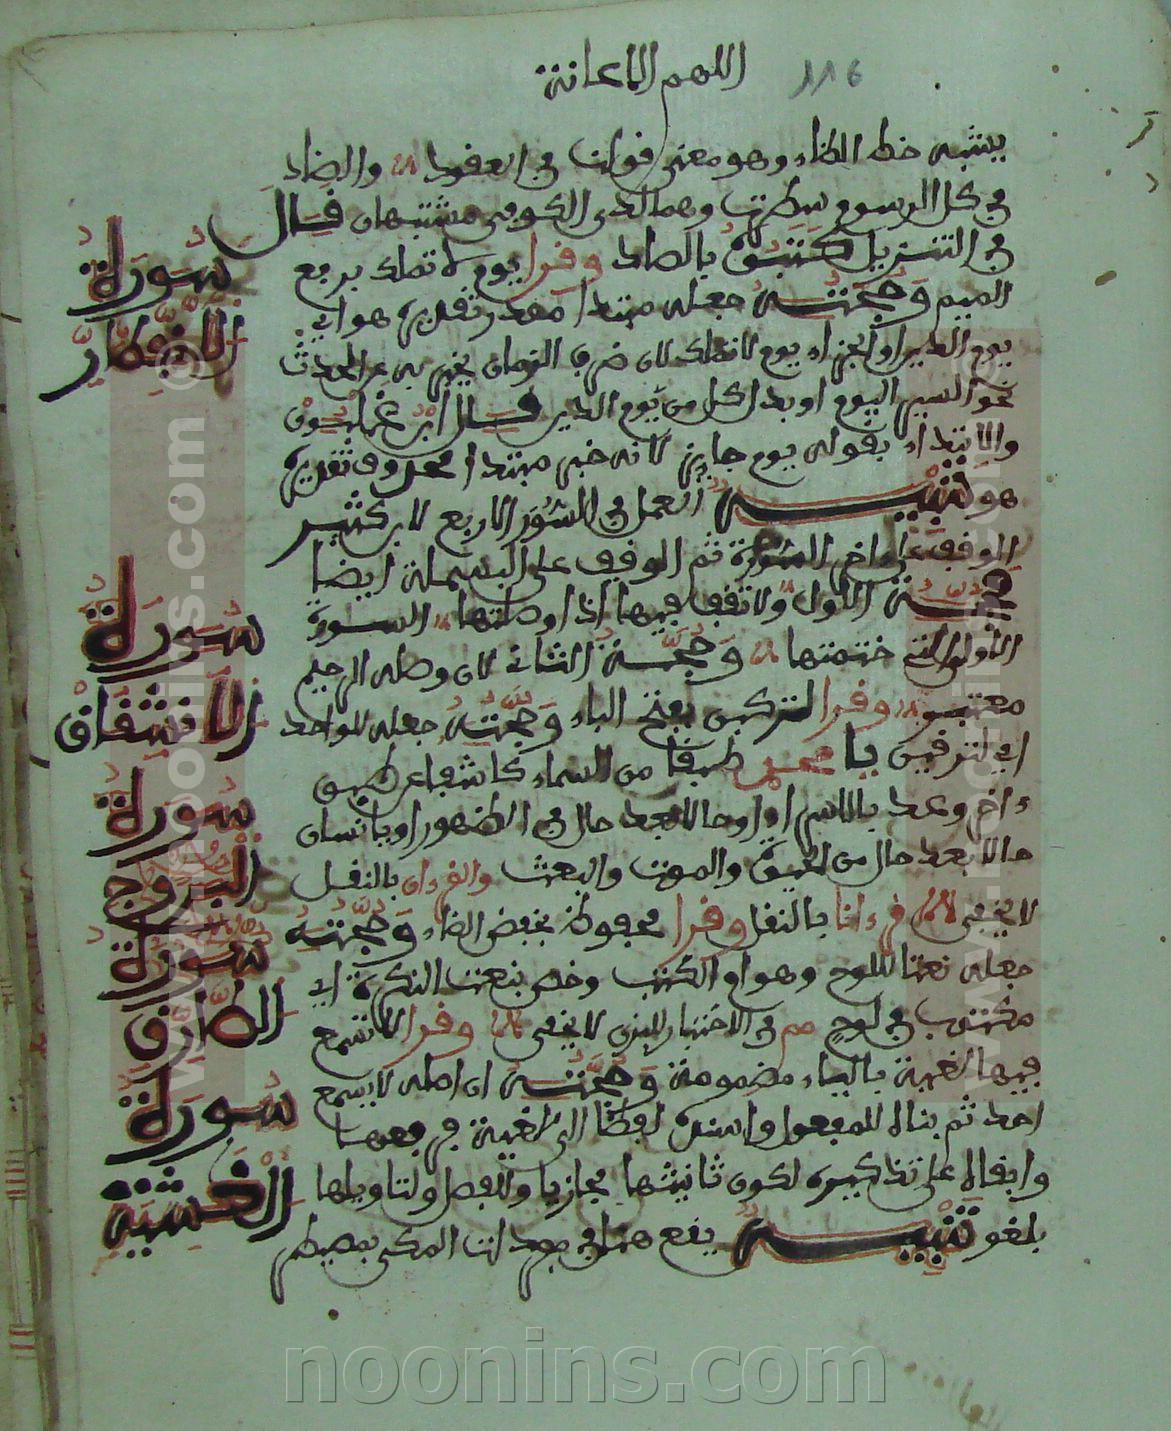 116
اللهم الاعانة
يشبه خط الظاء وهو معنى قولنا في العقود والضاد
في كل الرسوم سطرت وهما لدى الكوفي مشتبهان قال
في التنزيل كتبت بالضاد وقرا يوم لا تملك برفع
الميم وحجته جعله مبتدا مقدر تقديره هو اي
يوم الدين او الجزاء يوم لا تملك لان ظرف الزمان يخبر به عن الحدث
نحو السير اليوم او بدل كل من يوم الدين قال ابن غلبون
والابتداء بقوله يوم جايز لانه خبر مبتدا محذوف تقديره
هو تنبيه العمل في السور الاربع لابن كثير
الوقف على اخر السورة ثم الوقف على البسملة ايضا
حجة الاول ولا تقف فيها اذا وصلتها السورة
الاولى التي ختمتها وحجة الثاني لان وصله الرحيم
وقرا لتركبن بفتح الباء وحجته جعله للواحد
اي لترقين يا محمد طبقا من السماء كاشفا عن طبق
ءاخر وعد بالاسم او احوالا بعد حال في الظهور او يا انسان
حالا بعد حال من الحيوة والموت والبعث والقرءان بالنقل
لا يخفى قرءانا بالنقل وقرا محفوظ بخفض الظاء وحجته
جعله نعتا للوح وهو او الكتب وخص بنعت النكرة اي
مكتوب في لوح مم في الاختبار للبزي لا يخفى وقرا لا تسمع
فيها لغية بالياء مضمومة وحجته ان اصله لا يسمع
احد ثم بناه للمفعول واسنده لفظا الى لغية في فعها
وابقاه على تذكيره لكون تانيثها مجازيا وللفصل ولتاويلها
بلغو تنبيه يقع هنا في بعض المكي بمصيطر
سورة
الانفطار
سورة
الانشقاق
سورة
البروج
سورة
الطارق
سورة
الغشية
www.noonins.com ©
www.noonins.com ©
noonins.com